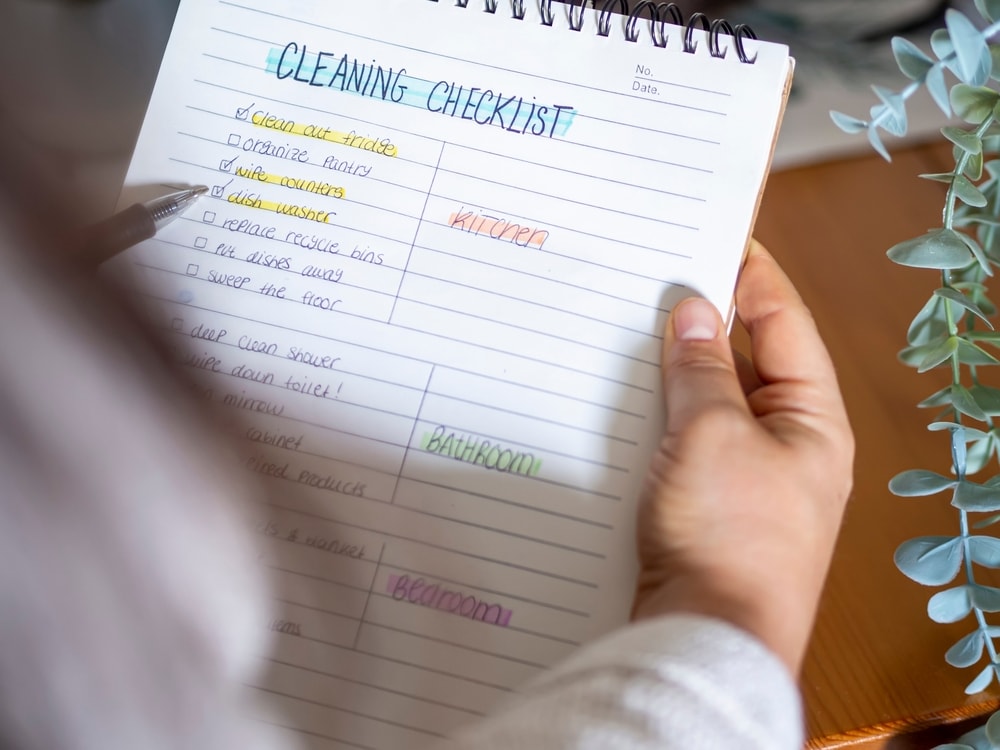 No.
Date.
CLEANING CHECKLIST
clean out fridge
organize pantry
wipe counters
dish washer
replace recycle bins
put dishes away
sweep the floor
KITCHEN
deep clean shower
wipe down toilet!
mirrow
cabinet
products
BATHROOM
& blanket
BEDROOM
items